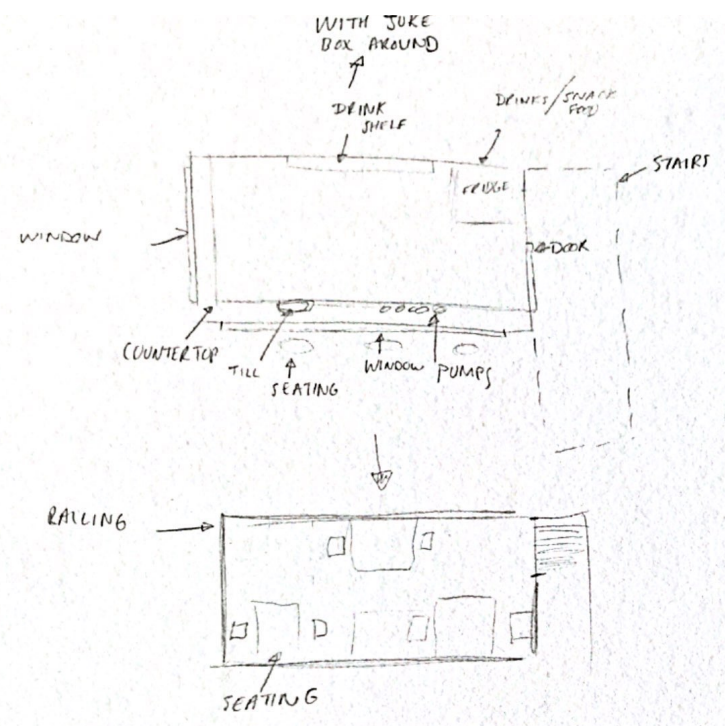 WITH JUKE
BOX AROUND
DRINK
SHELF
DRINKS/SNACK
FOOD
STAIRS
FRIDGE
WINDOW
DOOR
COUNTERTOP
TILL
SEATING
WINDOW
PUMPS
RAILING
SEATING